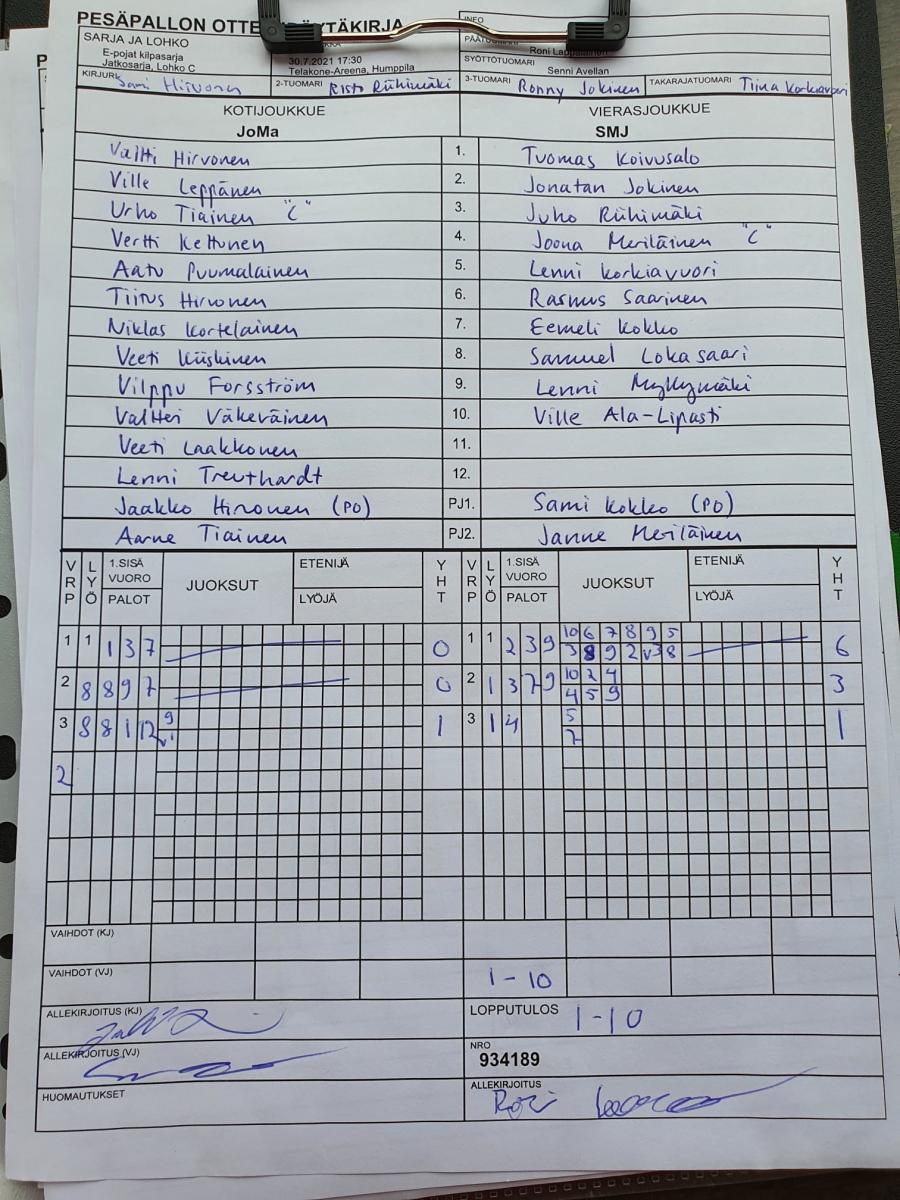 PESÄPALLON OTTE YTÄKIRJA
INFO
SARJA JA LOHKO
E-pojat kilpasarja
Jatkosarja, Lohko C
30.7.2021 17:30
Telakone-Areena, Humppila
Roni
SYÖTTÖTUOMARI
Senni Avellan
KIRJURI Sami Hirvonen
2-TUOMARI Risto Riihimäki
3-TUOMARI Ronny Jokinen
TAKARAJATUOMARI Tiina Korkiavuori
KOTIJOUKKUE
JoMa
VIERASJOUKKUE
SMJ
Valtti Hirvonen 1. Tuomas Koivusalo
Ville Leppänen 2. Jonatan Jokinen
Urho Tiainen "C" 3. Juho Riihimäki
Vertti Kettunen 4. Joona Meriläinen "C"
Aatu Puumalainen 5. Lenni Korkiavuori
Tiitus Hirvonen 6. Rasmus Saarinen
Niklas Kortelainen 7. Eemeli Kokko
Veeti Kiiskinen 8. Samuel Lokasaari
Vilppu Forsström 9. Lenni Myllymäki
Valtteri Väkeväinen 10. Ville Ala-Lipasti
Veeti Laakkonen 11.
Lenni Treuthardt 12.
Jaakko Hirvonen (PO) PJ1. Sami Kokko (PO)
Aarne Tiainen PJ2. Janne Meriläinen
VRP LYÖ 1.SISÄ VUORO PALOT JUOKSUT ETENIJÄ LYÖJÄ YHT VRP LYÖ 1.SISÄ VUORO PALOT JUOKSUT ETENIJÄ LYÖJÄ YHT
1 1 1 3 7 0 1 1 2 3 9 10 6 7 8 9 5 6
3 8 9 2 v3 8
2 8 8 9 7 0 2 1 3 7 9 10 2 4 3
4 5 9
3 8 8 1 12 9 1 3 1 4 5 1
v1 7
2
VAIHDOT (KJ)
VAIHDOT (VJ) 1-10
ALLEKIRJOITUS (KJ)
LOPPUTULOS 1-10
ALLEKIRJOITUS (VJ)
NRO
934189
HUOMAUTUKSET
ALLEKIRJOITUS
Roni